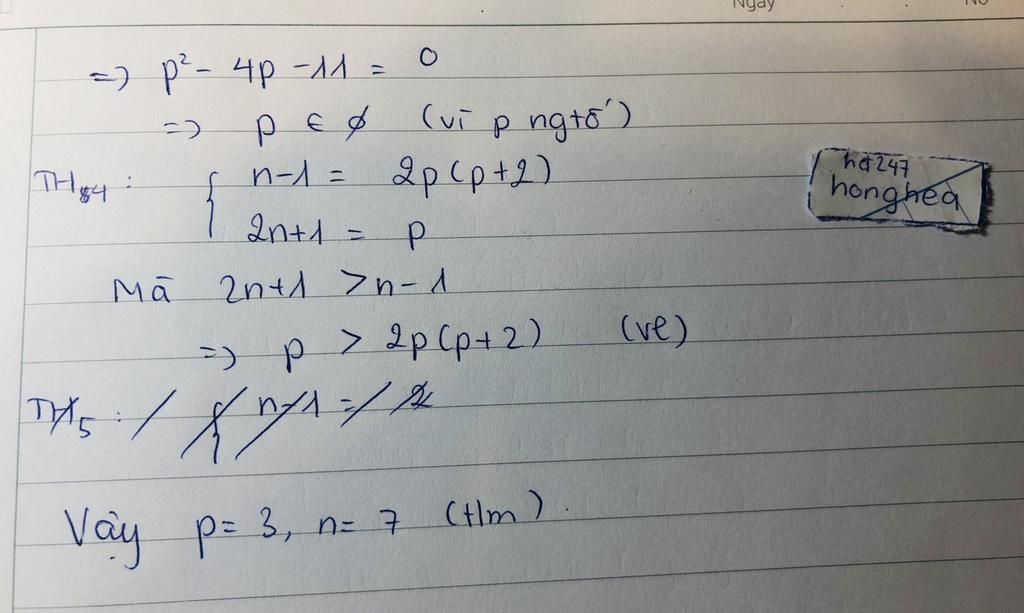 Ngày
No
=> p² - 4p - 11 = 0
=> p ∈ ∅ (vì p ngtố)
TH4 : { n-1 = 2p(p+2)
2n+1 = p
hd247
honghea
Mà 2n+1 > n-1
=> p > 2p(p+2) (vl)
TH5 : { n-1 = 2
Vậy p = 3, n = 7 (t/m).